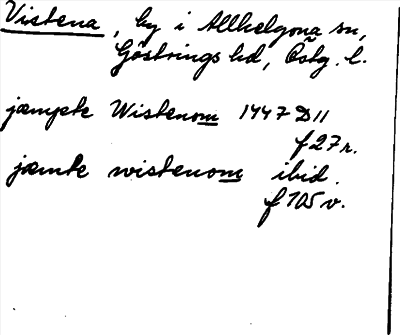 Vistena, by i Allhelgona sn,
Göstrings hd, Östg. l.
jæmpte Wistenom 1447 D 11
f 27 r.
jæmte wistenom ibid.
f 105 v.